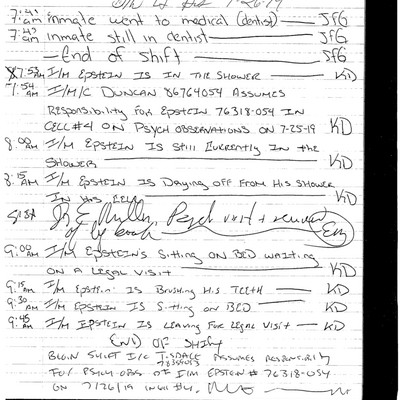 7:41 am inmate went to medical (dentist) — JFG
7:43 am inmate still in dentist — JFG
— End of Shift — JFG
7:53 AM I/M EPSTEIN IS IN THE SHOWER — KD
7:54 AM I/M/C DUNCAN 86764054 ASSUMES
RESPONSIBILITY FOR EPSTEIN 76318-054 IN
CELL #4 ON PSYCH OBSERVATIONS ON 7-25-19 KD
8:00 AM I/M EPSTEIN IS STILL CURRENTLY IN THE
SHOWER — KD
8:15 AM I/M EPSTEIN IS DRYING OFF FROM HIS SHOWER
IN HIS CELL — KD
Psych visit + review
of log book
9:00 AM I/M EPSTEIN'S SITTING ON BED WAITING
ON A LEGAL VISIT — KD
9:15 AM I/M EPSTEIN IS BRUSHING HIS TEETH — KD
9:30 AM I/M EPSTEIN IS SITTING ON BED — KD
9:45 AM I/M EPSTEIN IS LEAVING FOR LEGAL VISIT — KD
END OF SHIFT
BEGIN SHIFT I/C ASSUMES RESPONSIBILITY
FOR PSYCH OBS OF I/M EPSTEIN # 76318-054
ON 7/26/19 IN #4.